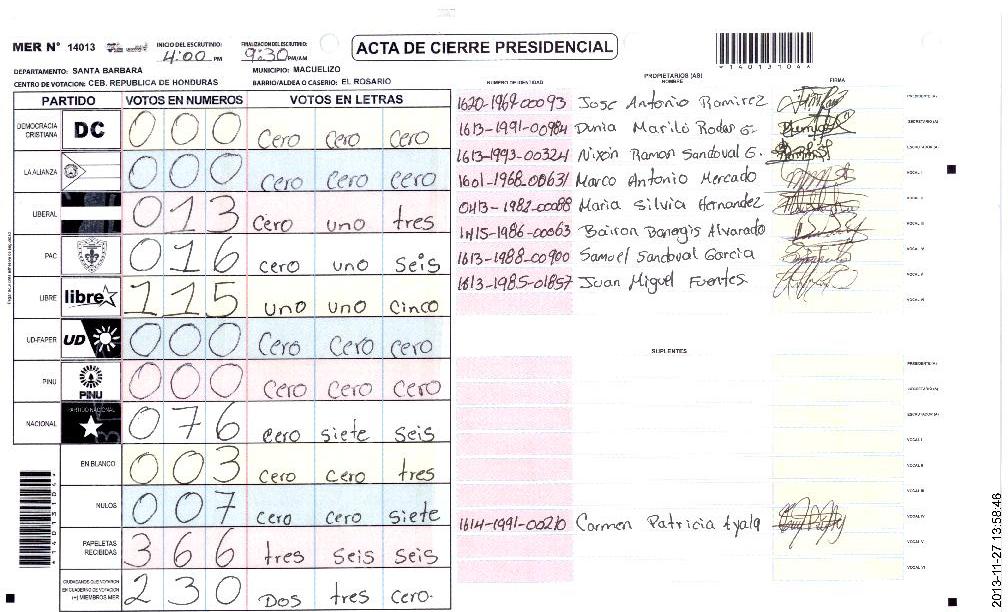 MER N° 14013 INICIO DEL ESCRUTINIO: 4:00 PM FINALIZACION DEL ESCRUTINIO: 9:30 PM/AM ACTA DE CIERRE PRESIDENCIAL
*14013104*
DEPARTAMENTO: SANTA BARBARA MUNICIPIO: MACUELIZO
CENTRO DE VOTACION: CEB. REPUBLICA DE HONDURAS BARRIO/ALDEA O CASERIO: EL ROSARIO
PARTIDO VOTOS EN NUMEROS VOTOS EN LETRAS
DEMOCRACIA CRISTIANA DC 0 0 0 Cero Cero Cero
LA ALIANZA 0 0 0 Cero Cero Cero
LIBERAL 0 1 3 Cero uno tres
PAC 0 1 6 cero uno seis
LIBRE libre 1 1 5 uno uno cinco
UD-FAPER UD 0 0 0 Cero Cero Cero
PINU PINU 0 0 0 Cero Cero Cero
NACIONAL PARTIDO NACIONAL 0 7 6 cero siete seis
EN BLANCO 0 0 3 cero cero tres
NULOS 0 0 7 cero cero siete
PAPELETAS RECIBIDAS 3 6 6 tres seis seis
CIUDADANOS QUE VOTARON EN CUADERNO DE VOTACION (+) MIEMBROS MER 2 3 0 Dos tres cero.
*14013104*
PROPIETARIOS (AS)
NUMERO DE IDENTIDAD NOMBRE FIRMA
1620-1969-00093 Jose Antonio Ramirez PRESIDENTE (A)
1613-1991-00984 Dunia Mariló Rodas G. SECRETARIO (A)
1613-1993-00324 Nixon Ramon Sandoval G. ESCRUTADOR (A)
1601-1968-00631 Marco Antonio Mercado VOCAL I
0413-1982-00088 Maria Silvia Hernandez VOCAL II
1415-1986-00063 Bairon Alvarado VOCAL III
1613-1988-00900 Samuel Sandoval Garcia VOCAL IV
1613-1985-01857 Juan Miguel Fuentes VOCAL V
VOCAL VI
SUPLENTES
PRESIDENTE (A)
SECRETARIO (A)
ESCRUTADOR (A)
VOCAL I
VOCAL II
VOCAL III
1614-1991-00210 Carmen Patricia Ayala VOCAL IV
VOCAL V
VOCAL VI
2013-11-27 13:58:46